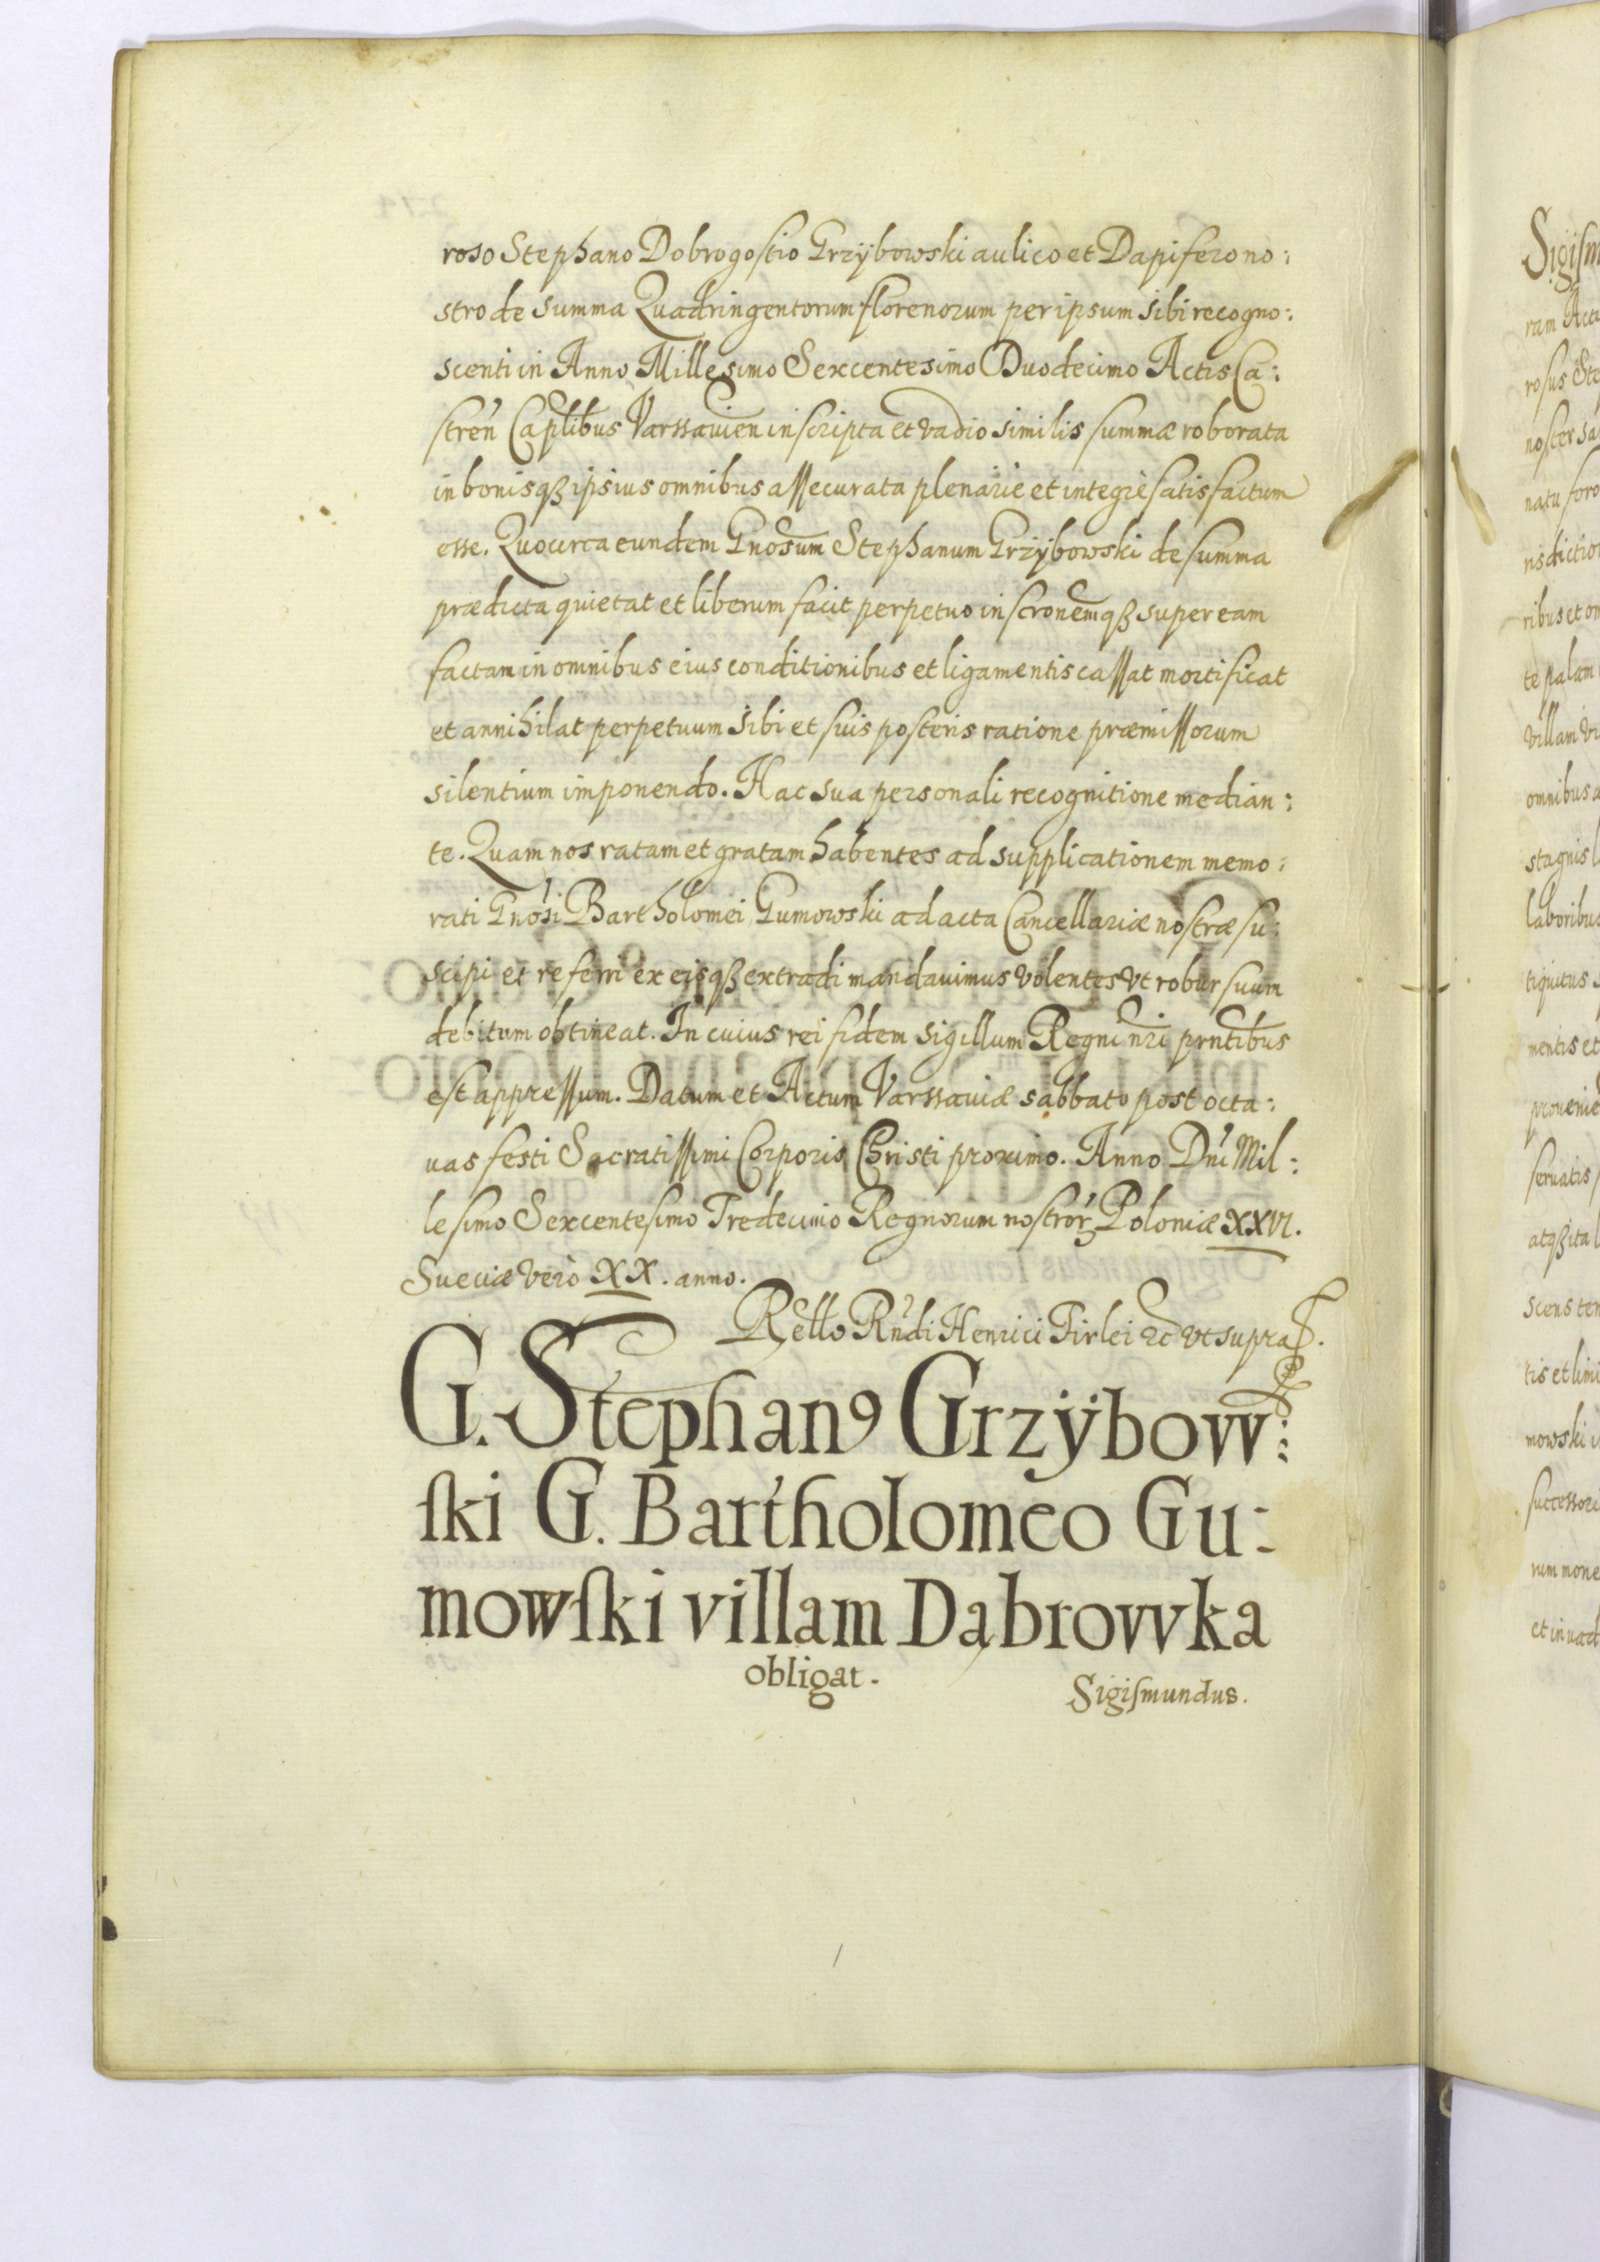 roso Stephano Dobrogostio Grzÿbowski aulico et Dapifero no:
stro de summa Quadringentorum florenorum per ipsum sibi recogno:
scenti in Anno Millesimo Sexcentesimo Duodecimo Actis Ca:
stren Caplibus Varssavien inscripta et vadio similis summæ roborata
in bonisqȝ ipsius omnibus assecurata plenarie et integre satisfactum
esse. Quocirca eundem Gnosum Stephanum Grzÿbowski de summa
prædicta quietat et liberum facit perpetuo inscronemqȝ super eam
factam in omnibus eius conditionibus et ligamentis cassat mortificat
et annihilat perpetuum sibi et suis posteris ratione præmissorum
silentium imponendo. Hac sua personali recognitione median:
te. Quam nos ratam et gratam habentes ad supplicationem memo:
rati Gnosi Bartholomei Gumowski ad acta Cancellariæ nostræ su:
scipi et referri ex eisqȝ extradi mandavimus volentes vt robur suum
debitum obtineat. In cuius rei fidem sigillum Regni nri prntibus
est appressum. Datum et Actum Varssaviæ sabbato post octa:
uas festi Sacratissimi Corporis Christi proximo. Anno Dni Mil:
lesimo Sexcentesimo Tredecimo Regnorum nostror Poloniæ XXVI.
Sueciæ vero XX. anno.
Rello Rndi Henrici Firlei etc vt supra.
G. Stephanꝰ Grzÿbow:
ski G. Bartholomeo Gu:
mowski villam Dąbrowka
obligat.
Sigismundus.
Sigism
ram Actu
rosus Ste
noster sa
natu foro
risdiction
ribus et om
te palam
villam
omnibus a
stagnis
laboribus
mentis et
prouenie
seruatis
atqȝ ita
scens ten
tis et limi
mowski
successori
rum mone
et in vad